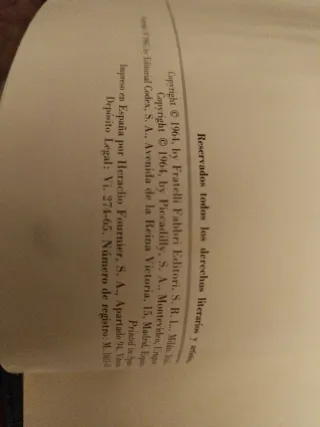 Reservados todos los derechos literarios y
Copyright © 1964, by Fratelli Fabbri Editori, S. R. L., Milán,
Copyright © 1964, by Piccadilly, S. A., Montevideo,
by Editorial Codex, S. A., Avenida de la Reina Victoria, 15, Madrid,
Printed in
Impreso en España por Heraclio Fournier, S. A., Apartado 94,
Depósito Legal: Vi. 274-65. Número de registro: M.